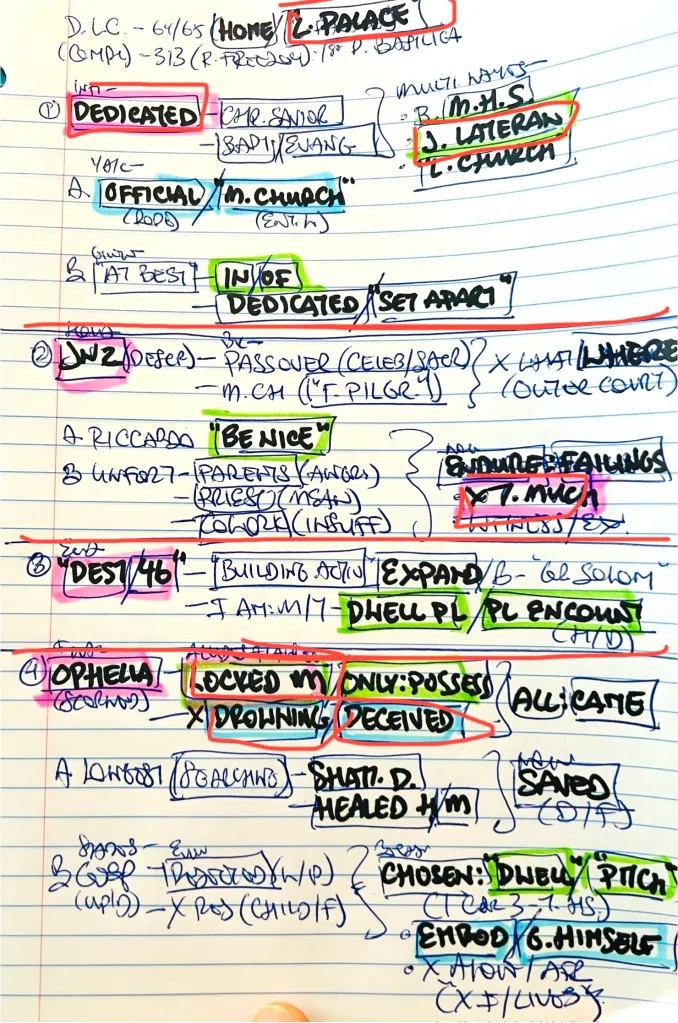 D.L.C. - 64/65 (HOME) L. PALACE
(COMPL) - 313 (R. FREEDOM): 1st P. BASILICA
① DEDICATED - CHR. SAVIOR
- BAPT/EVANG
MULTI NAMES -
B. M.H.S.
• J. LATERAN
• L. CHURCH
A OFFICIAL/"M. CHURCH"
(ROME) (ENT. W)
B "AT BEST" - IN/OF
- DEDICATED/"SET APART"
② JN2 (DESCR) - PASSOVER (CELEB/SACR) X WHAT/WHERE
- M. CH ("F. PILGR.") (OUTER COURT)
A RICCARDO "BE NICE"
B UNFORT - PARENTS (ANGRY)
- PRIEST (MEAN)
- COWORK (INSUFF)
ENDURE: FAILINGS
• X T. MUCH
• WITNESS/EX.
③ "DEST/46" - "BUILDING ACTIV" EXPAND/B - "GR. SOLOM"
- I AM: M/T - DWELL PL/PL ENCOUNT
(H/D)
④ OPHELIA - LOCKED M/ONLY: POSSESS
- X DROWNING/DECEIVED
ALL: CAME
A LONGEST (SEARCHING) - SHATT. D.
HEALED H/M
SAVED
(D/F)
B GOSP
(UP/D) - X ROS (CHILD/F)
CHOSEN: "DWELL"/"PITCH"
(1 COR 3 - T. HS.)
• EMBOD/G. HIMSELF
• X ALOW/AFR
(X I/LIVES)